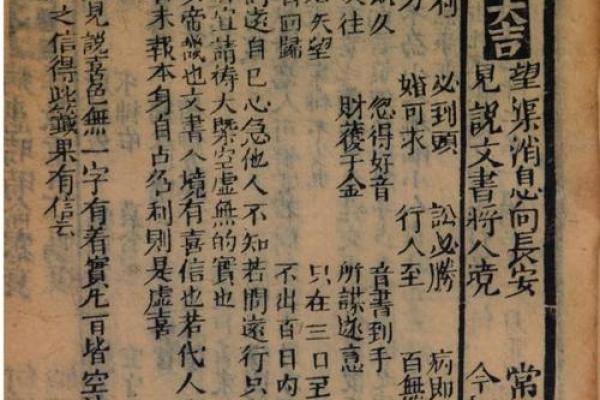 大吉
望渠消息向長安 常
見說文書將入境 今
利 必到頭 訟必勝 病即
婚可求 行人至 百無
久 忽得好音 音書到手
往 財穫千金 所謀遂意
失望 只在三日至
回歸 不出百日內
問遠自己心急他人不知若問遠行只
宜請禱大槩空虛無的實也
帝畿也文書入境有喜信也若代人
未報本身自占乃利則是虛喜
見說喜色無一字有着實凡百皆空
之信得此籤果有信云